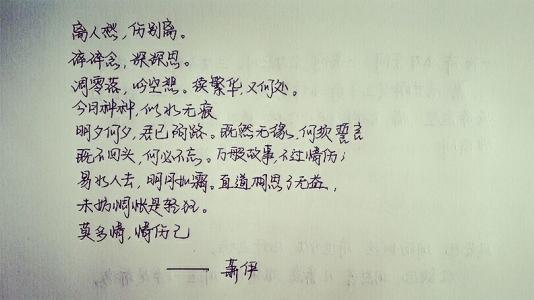 离人愁，伤别离。
碎碎念，深深思。
凋零落，吟空想。揉繁华又何处。
今月种种，似水无痕
明夕何夕，君已陌路。既然无缘，何须誓言
既不回头，何必不忘。万般故事，不过情伤；
易水人去，明月如霜。直道相思了无益，
未妨惆怅是轻狂。
莫多情，情伤己
—— 萧伊